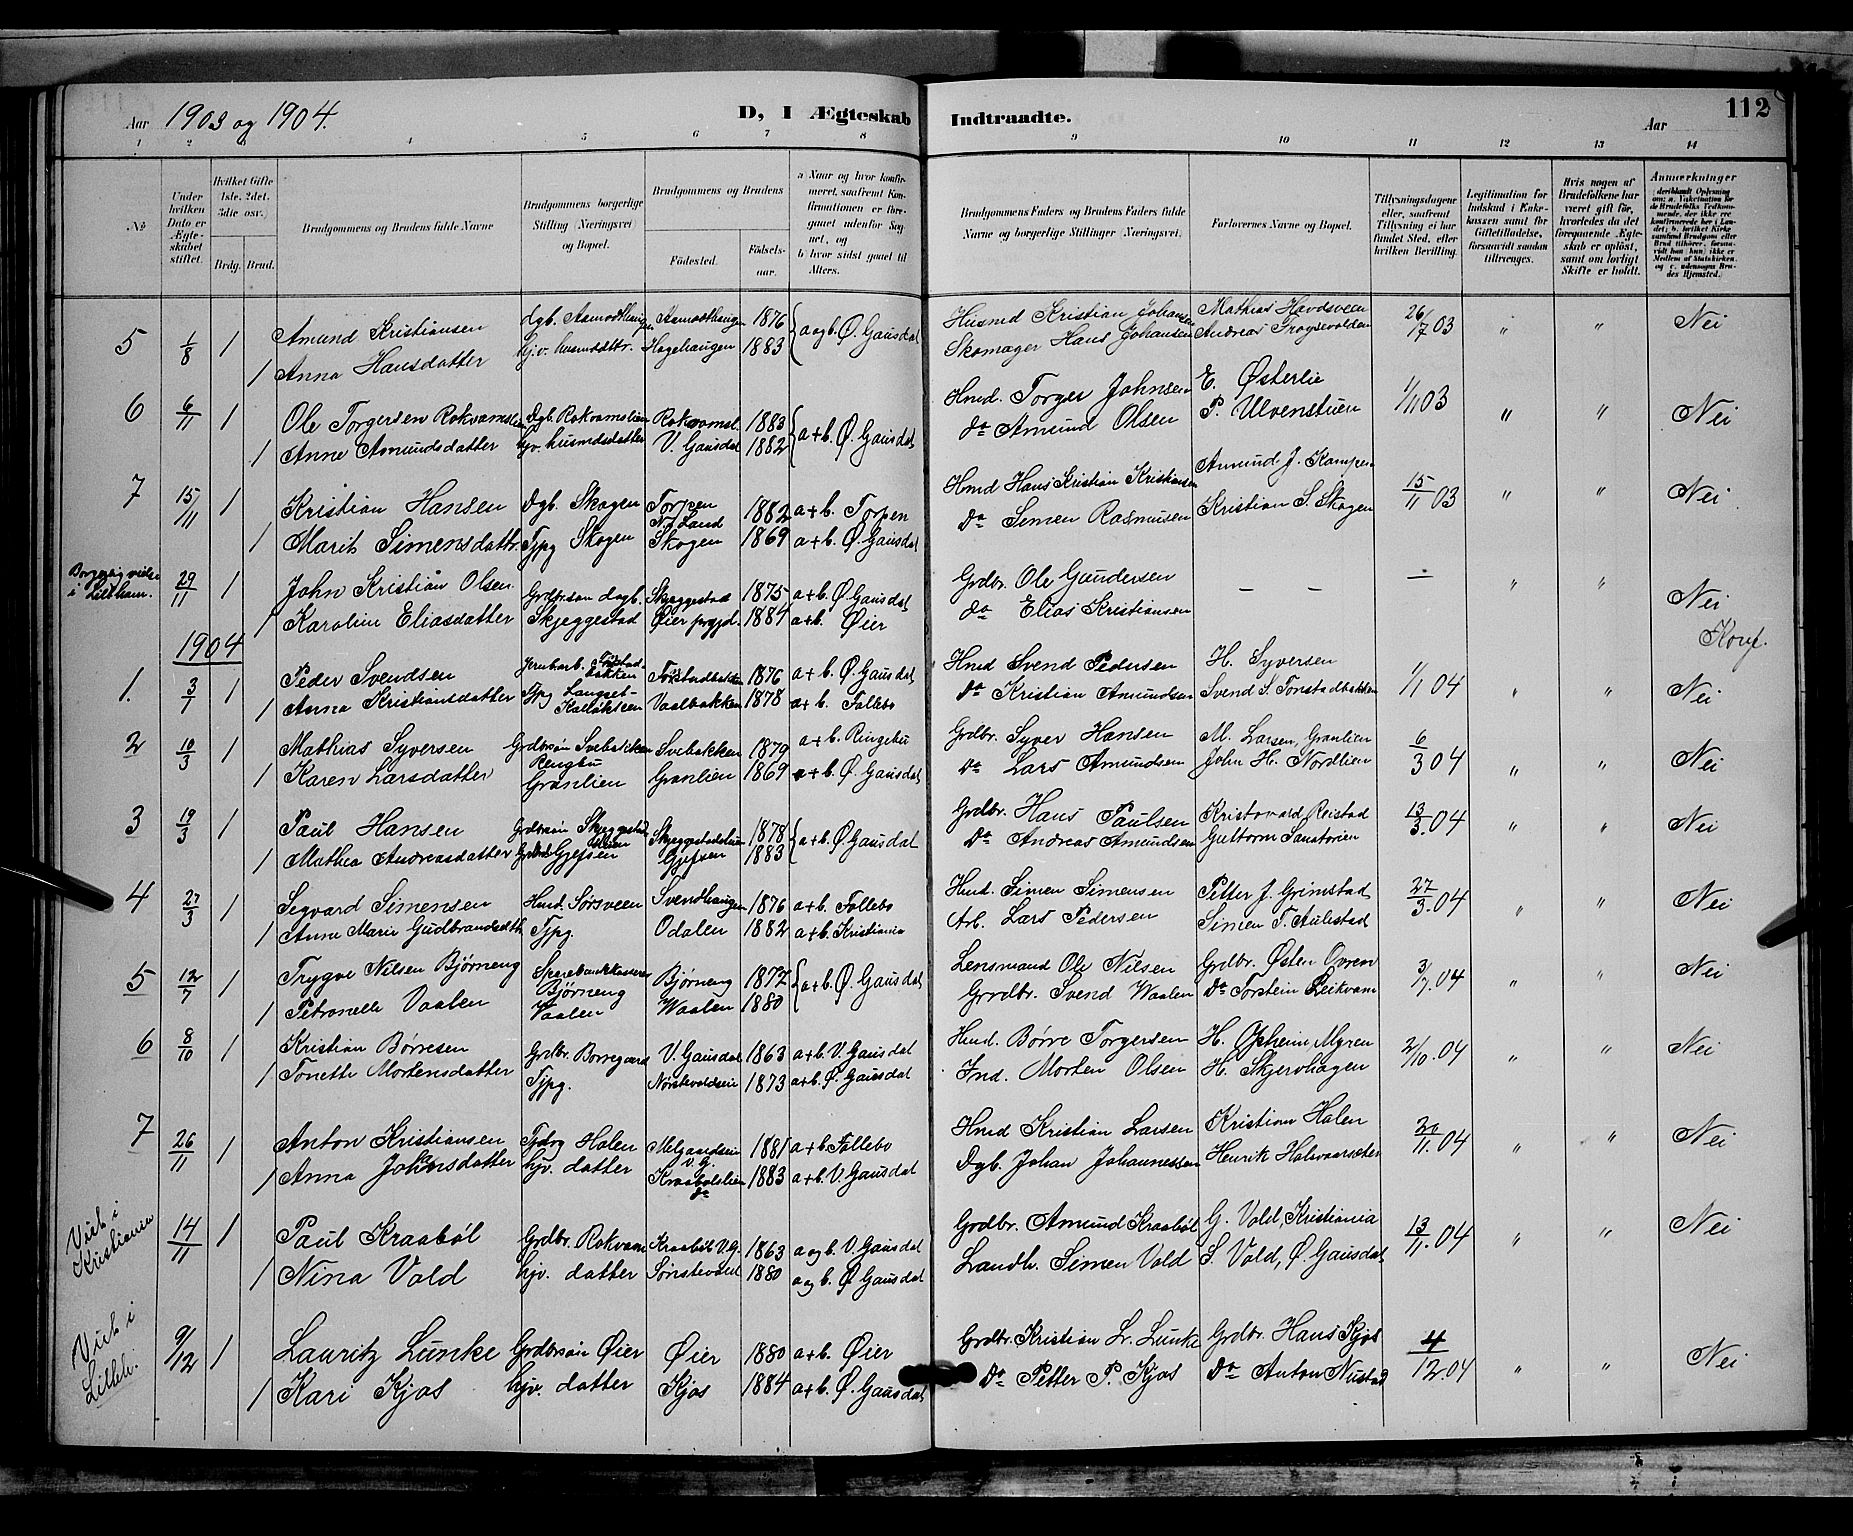 Aar 1903 og 1904. D, I Ægteskab Indtraadte. Aar 112
1 2 3 4 5 6 7 8 9 10 11 12 13 14
№
Under hvilken Dato er Ægteskabet stiftet.
Hvilket Gifte 1ste, 2det, 3die osv.)
Brdg. Brud.
Brudgommens og Brudens fulde Navne
Brudgommens borgerlige Stilling (Næringsvei) og Bopæl.
Brudgommens og Brudens
Födested.
Födselsaar.
a Naar og hvor konfirmeret, saafremt Konfirmationen er foregaaet udenfor Sognet, og
b hvor sidst gaaet til Alters.
Brudgommens Faders og Brudens Faders fulde Navne og borgerlige Stillinger (Næringsvei).
Forlovernes Navne og Bopæl.
Tillysningsdagene eller, saafremt Tillysning ei har fundet Sted, efter hvilken Bevilling.
Legitimation for Indskud i Enkekassen samt for Giftetilladelse, forsaavidt saadan tiltrænges.
Hvis nogen af Brudefolkene har været gift för, hvorledes da det foregaaende Ægteskab er oplöst, samt om lovligt Skifte er holdt.
Anmærkninger
5 1/8 1 Amund Kristiansen Dgb. Aamodthaugen Aamodthaugen 1876 { a og b. Ø. Gausdal Husmd Kristian Johansen Mathias Havdsveen 26/7 03 " " Nei
1 Anna Hansdatter hjv. husmdsdtr. Hagehaugen 1883 Skomager Hans Johansen Andreas
6 6/11 1 Ole Torgersen Rokvamslien Dgb. Rokvamslien Rokvamsl. 1883 { a + b. Ø. Gausdal Hmd. Torger Johnsen E. Østerlie 1/11 03 " " Nei
1 Anne Amundsdatter hjv. husmdsdatter V. Gausdal 1882 do Amund Olsen P. Ulvenstuen
7 15/11 1 Kristian Hansen Dgb. Skogen Torpen N. Land 1882 a + b. Torpen Hmd Hans Kristian Kristiansen Amund J. Kampen 15/11 03 " " Nei
1 Marit Simensdattr. Tjpg Skogen Skogen 1869 a + b. Ø. Gausdal do Simen Rasmusen Kristian S. Skogen
Borgerlig vielse i Lillham. 29/11 1 John Kristian Olsen Grdbrsøn dagb. Skjeggestad 1875 a + b. Ø. Gausdal Grdbr. Ole Gundersen — — — " " Nei
1 Karoline Eliasdatter Skjeggestad Øier prgjd. 1884 a + b. Øier do Elias Kristiansen Konf.
1904
1. 3/1 1 Peder Svendsen Jernbarb. Tonstadbakken Tonstadbakken 1876 a + b. Ø. Gausdal Hmd Svend Pedersen H. Syversen 1/1 04 " " Nei
1 Anna Kristiansdatter Tjpg Vaalbakken 1878 a + b. Follebo do Kristian Amundsen Svend S. Tonstadbakken
2 10/3 1 Mathias Syversen Grdbrsøn Svebakken Ringebu Svebakken 1879 a + b. Ringebu Grdbr. Syver Hansen M. Larsen, Granlien 6/3 04 " " Nei
1 Karen Larsdatter Granlien Granlien 1869 a + b. Ø. Gausdal do Lars Amundsen John H. Nordlien
3 19/3 1 Paul Hansen Grdbrsøn Skjeggestadstuen Skjeggestadstuen 1878 { a + b. Ø. Gausdal Grdbr. Hans Paulsen Kristovald Reistad 13/3.04 " " Nei
1 Mathea Andreasdatter Gjefsen Gjefsen 1883 do Andreas Amundsen Guttorm Sanatorien
4 27/3 1 Segvard Simensen Hmd. Sørsveen Svendhaugen 1876 a + b. Follebo Hmd. Simen Simensen Petter J. Grimstad 27/3.04 " " Nei
1 Anne Marie Gudbrandsdth. Tjpg. Odalen 1882 a + b. Kristiania Arb. Lars Pedersen Simen T. Aulestad
5 12/7 1 Trygve Nilsen Bjørneng Sparebankkasserer Bjørneng Bjørneng 1872 { a + b. Ø. Gausdal Lensmand Ole Nilsen Grdbr. Østen Ovren 3/7.04 " " Nei
1 Petronelle Vaalen Vaalen Waalen 1880 Grdbr. Svend Waalen do Torstein Reikvam
6 8/10 1 Kristian Børresen Grdbr. Borregaard V. Gausdal 1863 a + b. V. Gausdal Hmd. Børre Torgersen H. Opheim Myren 2/10.04 " " Nei
1 Tonette Mortensdatter Tjpg. Nørstevoldseie 1873 a + b. Ø. Gausdal Ind. Morten Olsen H. Skjervhagen
7 26/11 1 Anton Kristiansen Tjdrg Holen Melgaardseie V. G. 1881 a + b Follebo Hmd Kristian Larsen Kristian Holen 20/11.04 " " Nei
1 Anna Johansdatter hjv. datter Kraabølslien do 1883 a + b. V. Gausdal Dgb. Johan Johannessen Henrik Halvaarsæter
Viet i Kristiania 14/11 1 Paul Kraabøl Grdbr. Rokvam Kraabøl V. G. 1863 a og b. V. Gausdal Grdbr. Amund Kraabøl G. Vold, Kristiania 13/11.04 " " Nei
1 Nina Vold hjv. datter Sønstevold 1880 a og b. Ø. Gausdal Landh. Simen Vold S. Vold, Ø. Gausdal
Viet i Lilleh. 9/12 1 Lauritz Lunke Grdbrsøn Øier Øier 1880 a + b. Øier Grdbr. Kristian Lr. Lunke Grdbr. Hans Kjos 4/12.04 " " Nei
1 Kari Kjos hjv. datter Kjos 1884 a + b. Ø. Gausdal do Petter P. Kjos do Anton Nustad